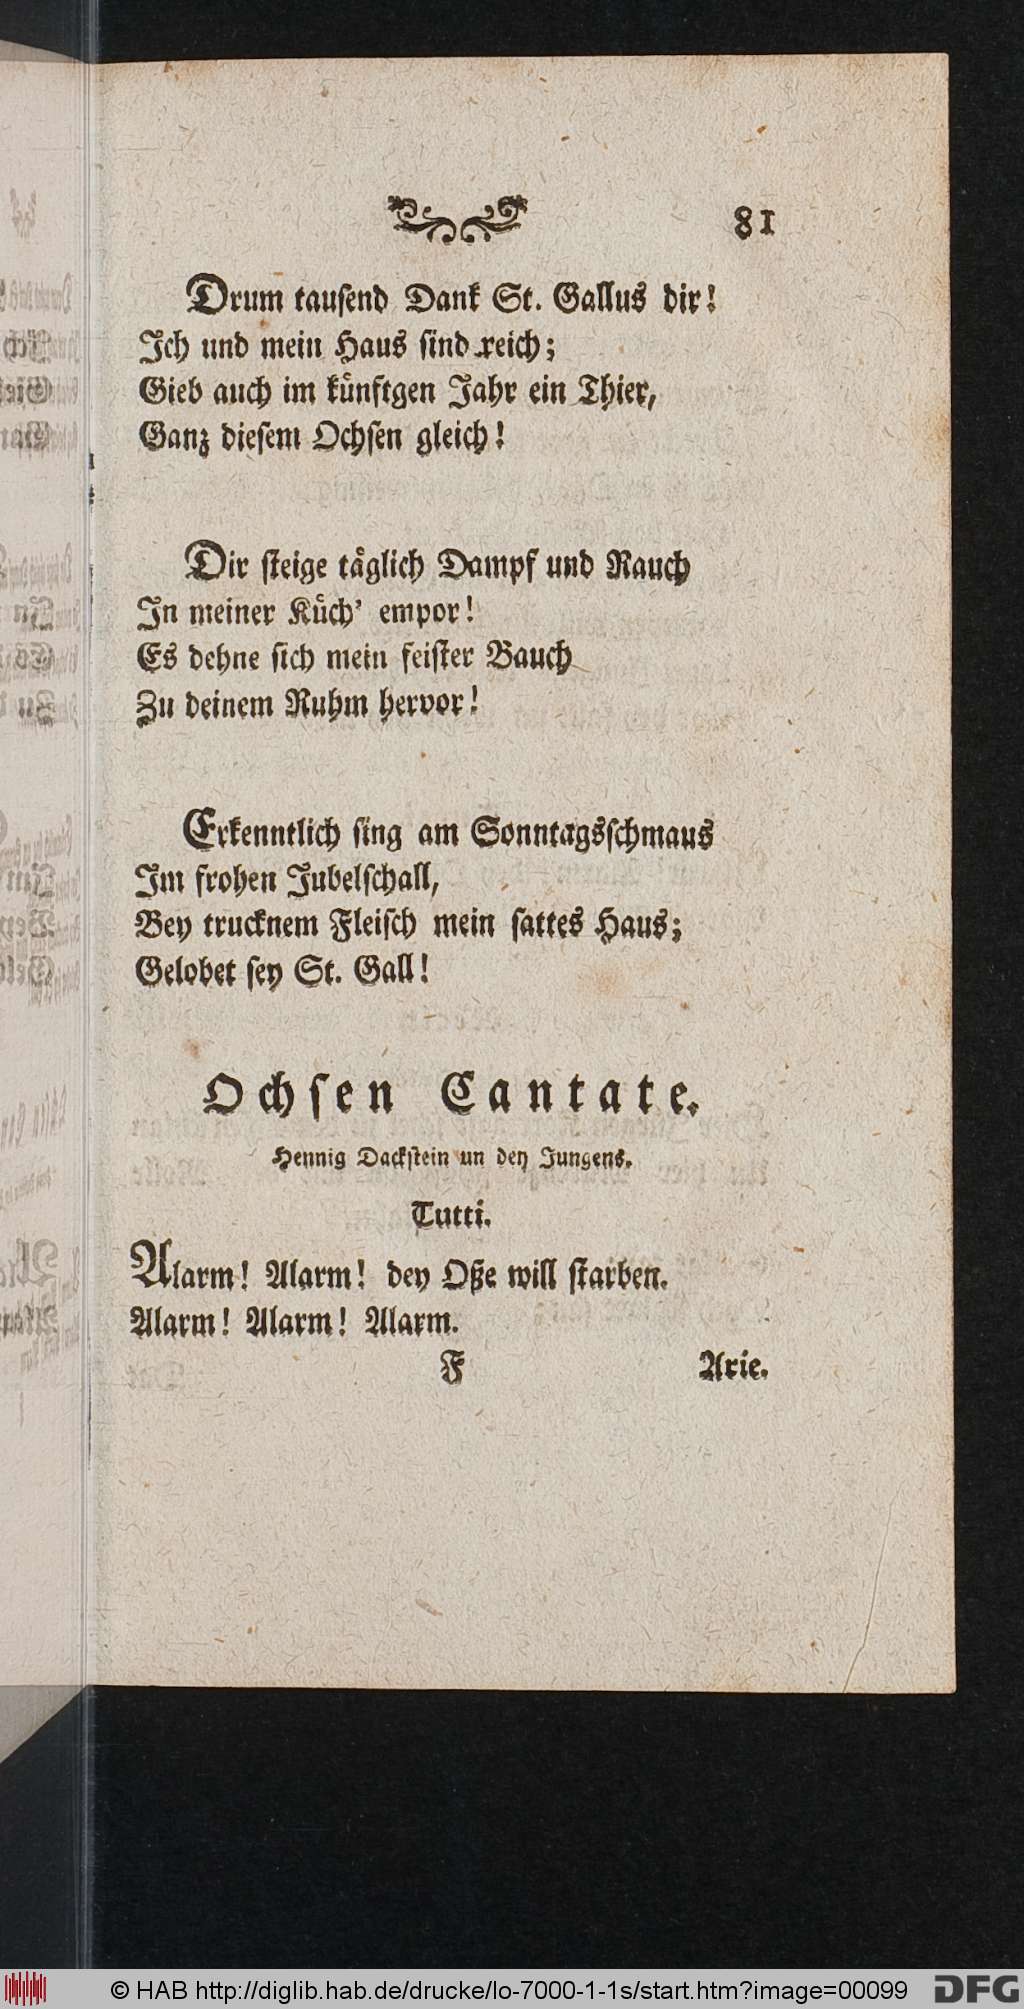 81
Drum tauſend Dank St. Gallus dir!
Ich und mein Haus ſind reich;
Gieb auch im kuͤnftgen Jahr ein Thier,
Ganz dieſem Ochſen gleich!
Dir ſteige taͤglich Dampf und Rauch
In meiner Kuͤch' empor!
Es dehne ſich mein feiſter Bauch
Zu deinem Ruhm hervor!
Erkenntlich ſing am Sonntagsſchmaus
Im frohen Jubelſchall,
Bey trucknem Fleiſch mein ſattes Haus;
Gelobet ſey St. Gall!
Ochſen Cantate.
Hennig Dackſtein un dey Jungens.
Tutti.
Alarm! Alarm! dey Oße will ſtarben.
Alarm! Alarm! Alarm.
F Arie.
© HAB http://diglib.hab.de/drucke/lo-7000-1-1s/start.htm?image=00099 DFG